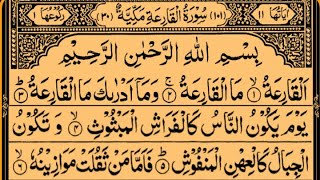 اٰيَاتُهَا ١١ (١٠١) سُوْرَةُ الْقَارِعَةِ مَكِّيَّةٌ (٣٠) رُكُوْعُهَا ١
بِسْمِ اللّٰهِ الرَّحْمٰنِ الرَّحِيْمِ
اَلْقَارِعَةُ ۙ﴿١﴾ مَا الْقَارِعَةُ ۚ﴿٢﴾ وَمَاۤ اَدْرٰىكَ مَا الْقَارِعَةُ ﴿٣﴾
يَوْمَ يَكُوْنُ النَّاسُ كَالْفَرَاشِ الْمَبْثُوْثِ ۙ﴿٤﴾ وَ تَكُوْنُ
الْجِبَالُ كَالْعِهْنِ الْمَنْفُوْشِ ﴿٥﴾ فَاَمَّا مَنْ ثَقُلَتْ مَوَازِيْنُهٗ ۙ﴿٦﴾